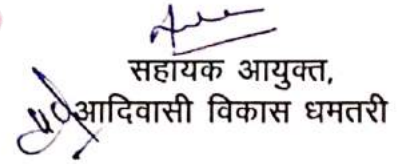 सहायक आयुक्त,
आदिवासी विकास धमतरी